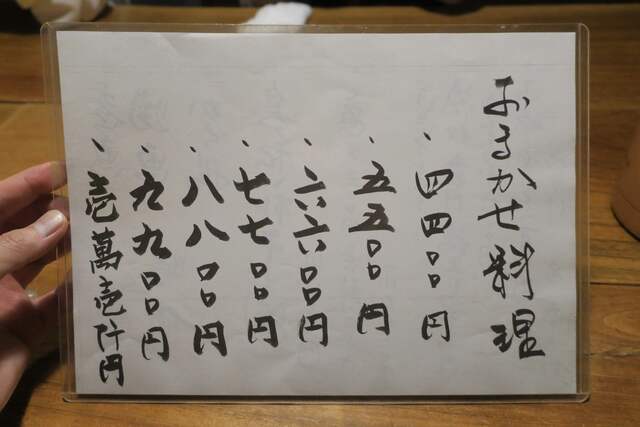 おまかせ料理
、四四〇〇円
、五五〇〇円
、六六〇〇円
、七七〇〇円
、八八〇〇円
、九九〇〇円
、壱萬壱仟円